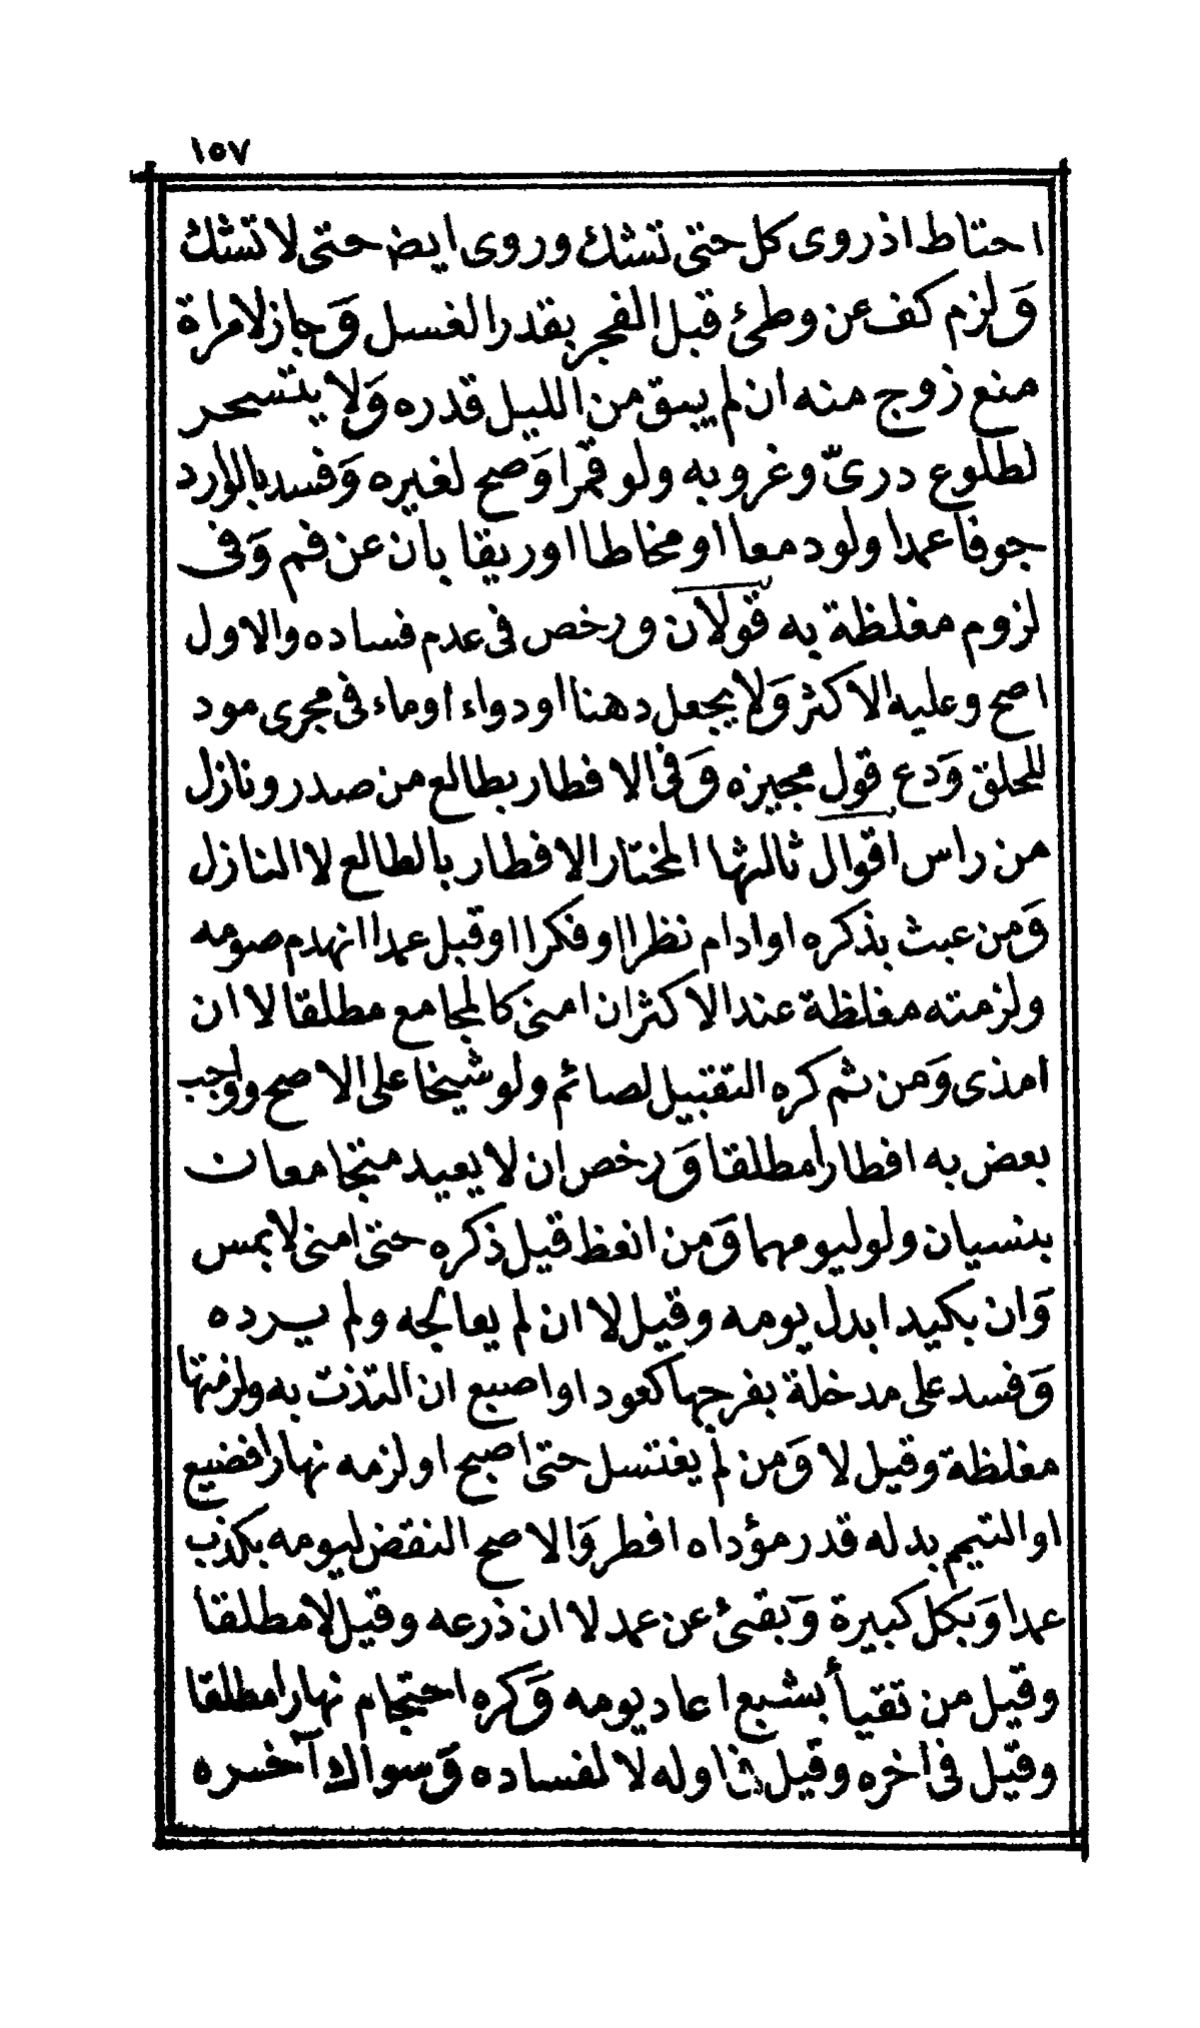 ١٥٧
احتاط اذ روى كل حتى تشك وروى ايض حتى لا تشك
وَلزم كف عن وطئ قبل الفجر بقدر الغسل وَجاز لامراة
منع زوج منه ان لم يبق من الليل قدره وَلا يتسحر
لطلوع درىّ وغروبه ولو قمرا وَصح لغيره وَفسد بالوارد
جوفا عمدا ولو دمعا او مخاطا او ريقا بان عن فم وَفى
لزوم مغلظة به قولان ورخص فى عدم فساده والاول
اصح وعليه الاكثر وَلا يجعل دهنا او دواء او ماء فى مجرى مود
للحلق وَدع قول مجيزه وَفى الافطار بطالع من صدر ونازل
من راس اقوال ثالثها المختار الافطار بالطالع لا النازل
وَمن عبث بذكره او ادام نظرا او فكرا او قبل عمدا انهدم صومه
ولزمته مغلظة عند الاكثر ان امنى كالمجامع مطلقا لا ان
امذى وَمن ثم كره التقبيل لصائم ولو شيخا على الاصح وواجب
بعض به افطارا مطلقا وَرخص ان لا يعيد متجامعان
بنسيان ولو ليومهما وَمن انعظ قيل ذكره حتى امنى لا بمس
وَان بكيد ابدل يومه وقيل لا ان لم يعالجه ولم يرده
وَفسد على مدخلة بفرجها كعود او اصبع ان التذت به ولزمتها
مغلظة وقيل لا وَمن لم يغتسل حتى اصبح او لزمه نهارا فضيع
او التيمم بدله قدر مؤداه افطر وَالاصح النقض ليومه بكذب
عمدا وَبكل كبيرة وَبقئ عن عمد لا ان ذرعه وقيل لا مطلقا
وقيل من تقيأ بشبع اعاد يومه وَكره احتجام نهارا مطلقا
وقيل فى اخره وقيل فى اوله لا لفساده وَسواك آخره